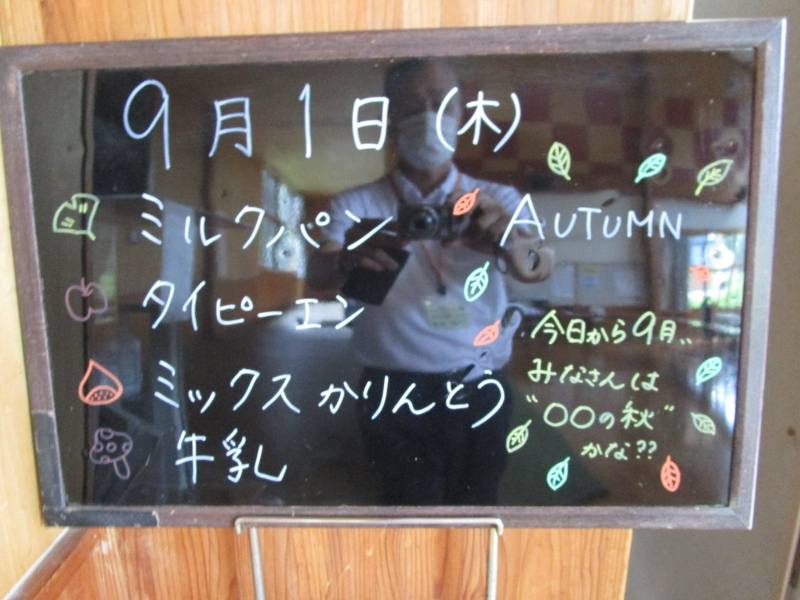 9月1日(木)
ミルクパン
タイピーエン
ミックスかりんとう
牛乳
AUTUMN
今日から9月、、
みなさんは
"〇〇の秋"
かな??